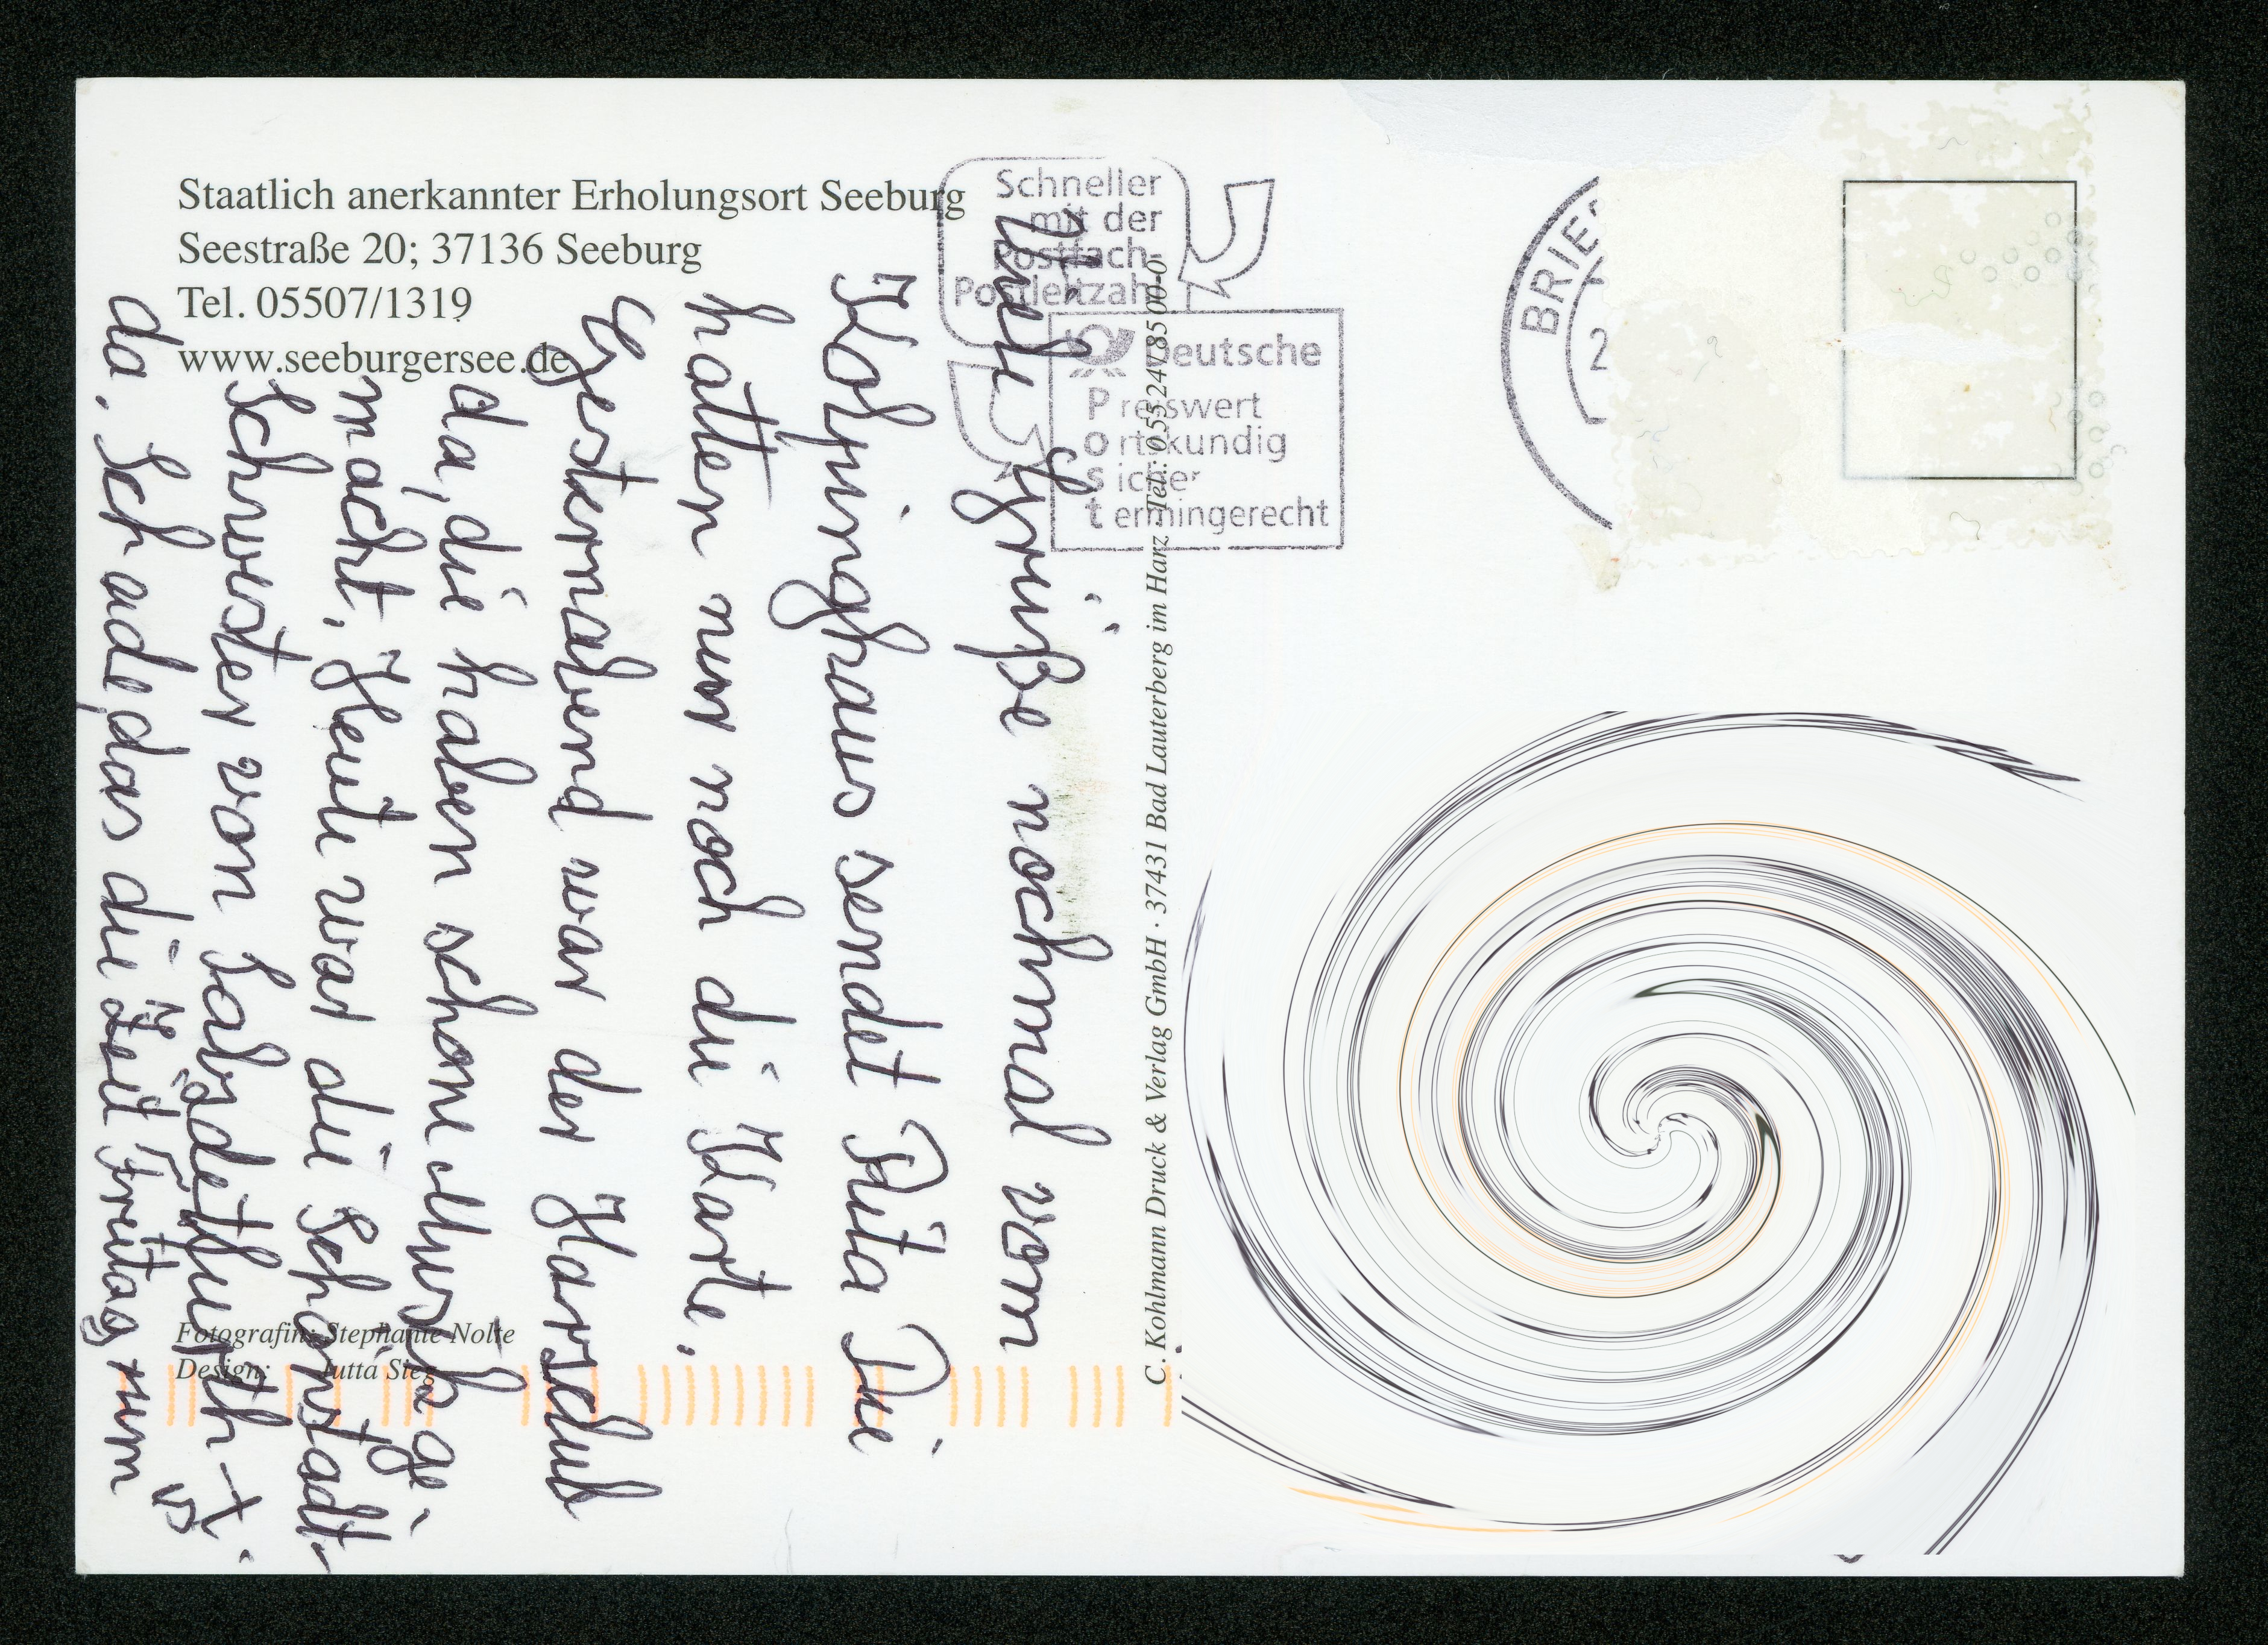 Staatlich anerkannter Erholungsort Seeburg
Seestraße 20; 37136 Seeburg
Tel. 05507/1319
www.seeburgersee.de
Schneller
mit der
Postfach-
Postleitzahl
Deutsche
Preiswert
ortskundig
sicher
termingerecht
BRIE
2
Viele Grüße nochmal vom
Kolpinghaus sendet Rita Die
hatten nur noch die Karte.
Gesternabend war der
da, die haben schone Musik ge-
macht. Heute war die Schönstadt-
Schwester von
da. Schade, das die Zeit Freitag rum
Fotografin: Stephanie Nolte
Design: Jutta Sieg
C. Kohlmann Druck & Verlag GmbH · 37431 Bad Lauterberg im Harz · Tel.: 0 55 24 / 85 00-0